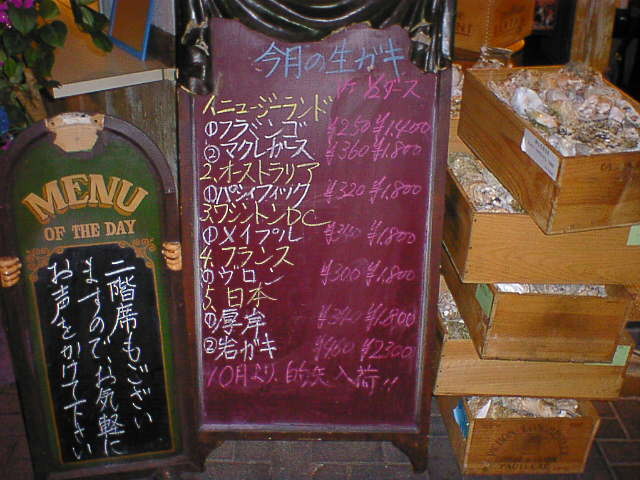 MENU
OF THE DAY
二階席もござい
ますので、お気軽に
お声をかけて下さい
今月の生ガキ
1ヶ 1/2ダース
1.ニュージーランド
①フラミンゴ ¥250 ¥1.400
②マクレガース ¥360 ¥1.800
2.オーストラリア
①パシィフィック ¥320 ¥1.800
3.ワシントンDC
①メイプル ¥340 ¥1.800
4.フランス
①ヴロン ¥300 ¥1.800
5.日本
①厚岸 ¥340 ¥1.800
②岩ガキ ¥460 ¥2300
10月より 的矢入荷!!